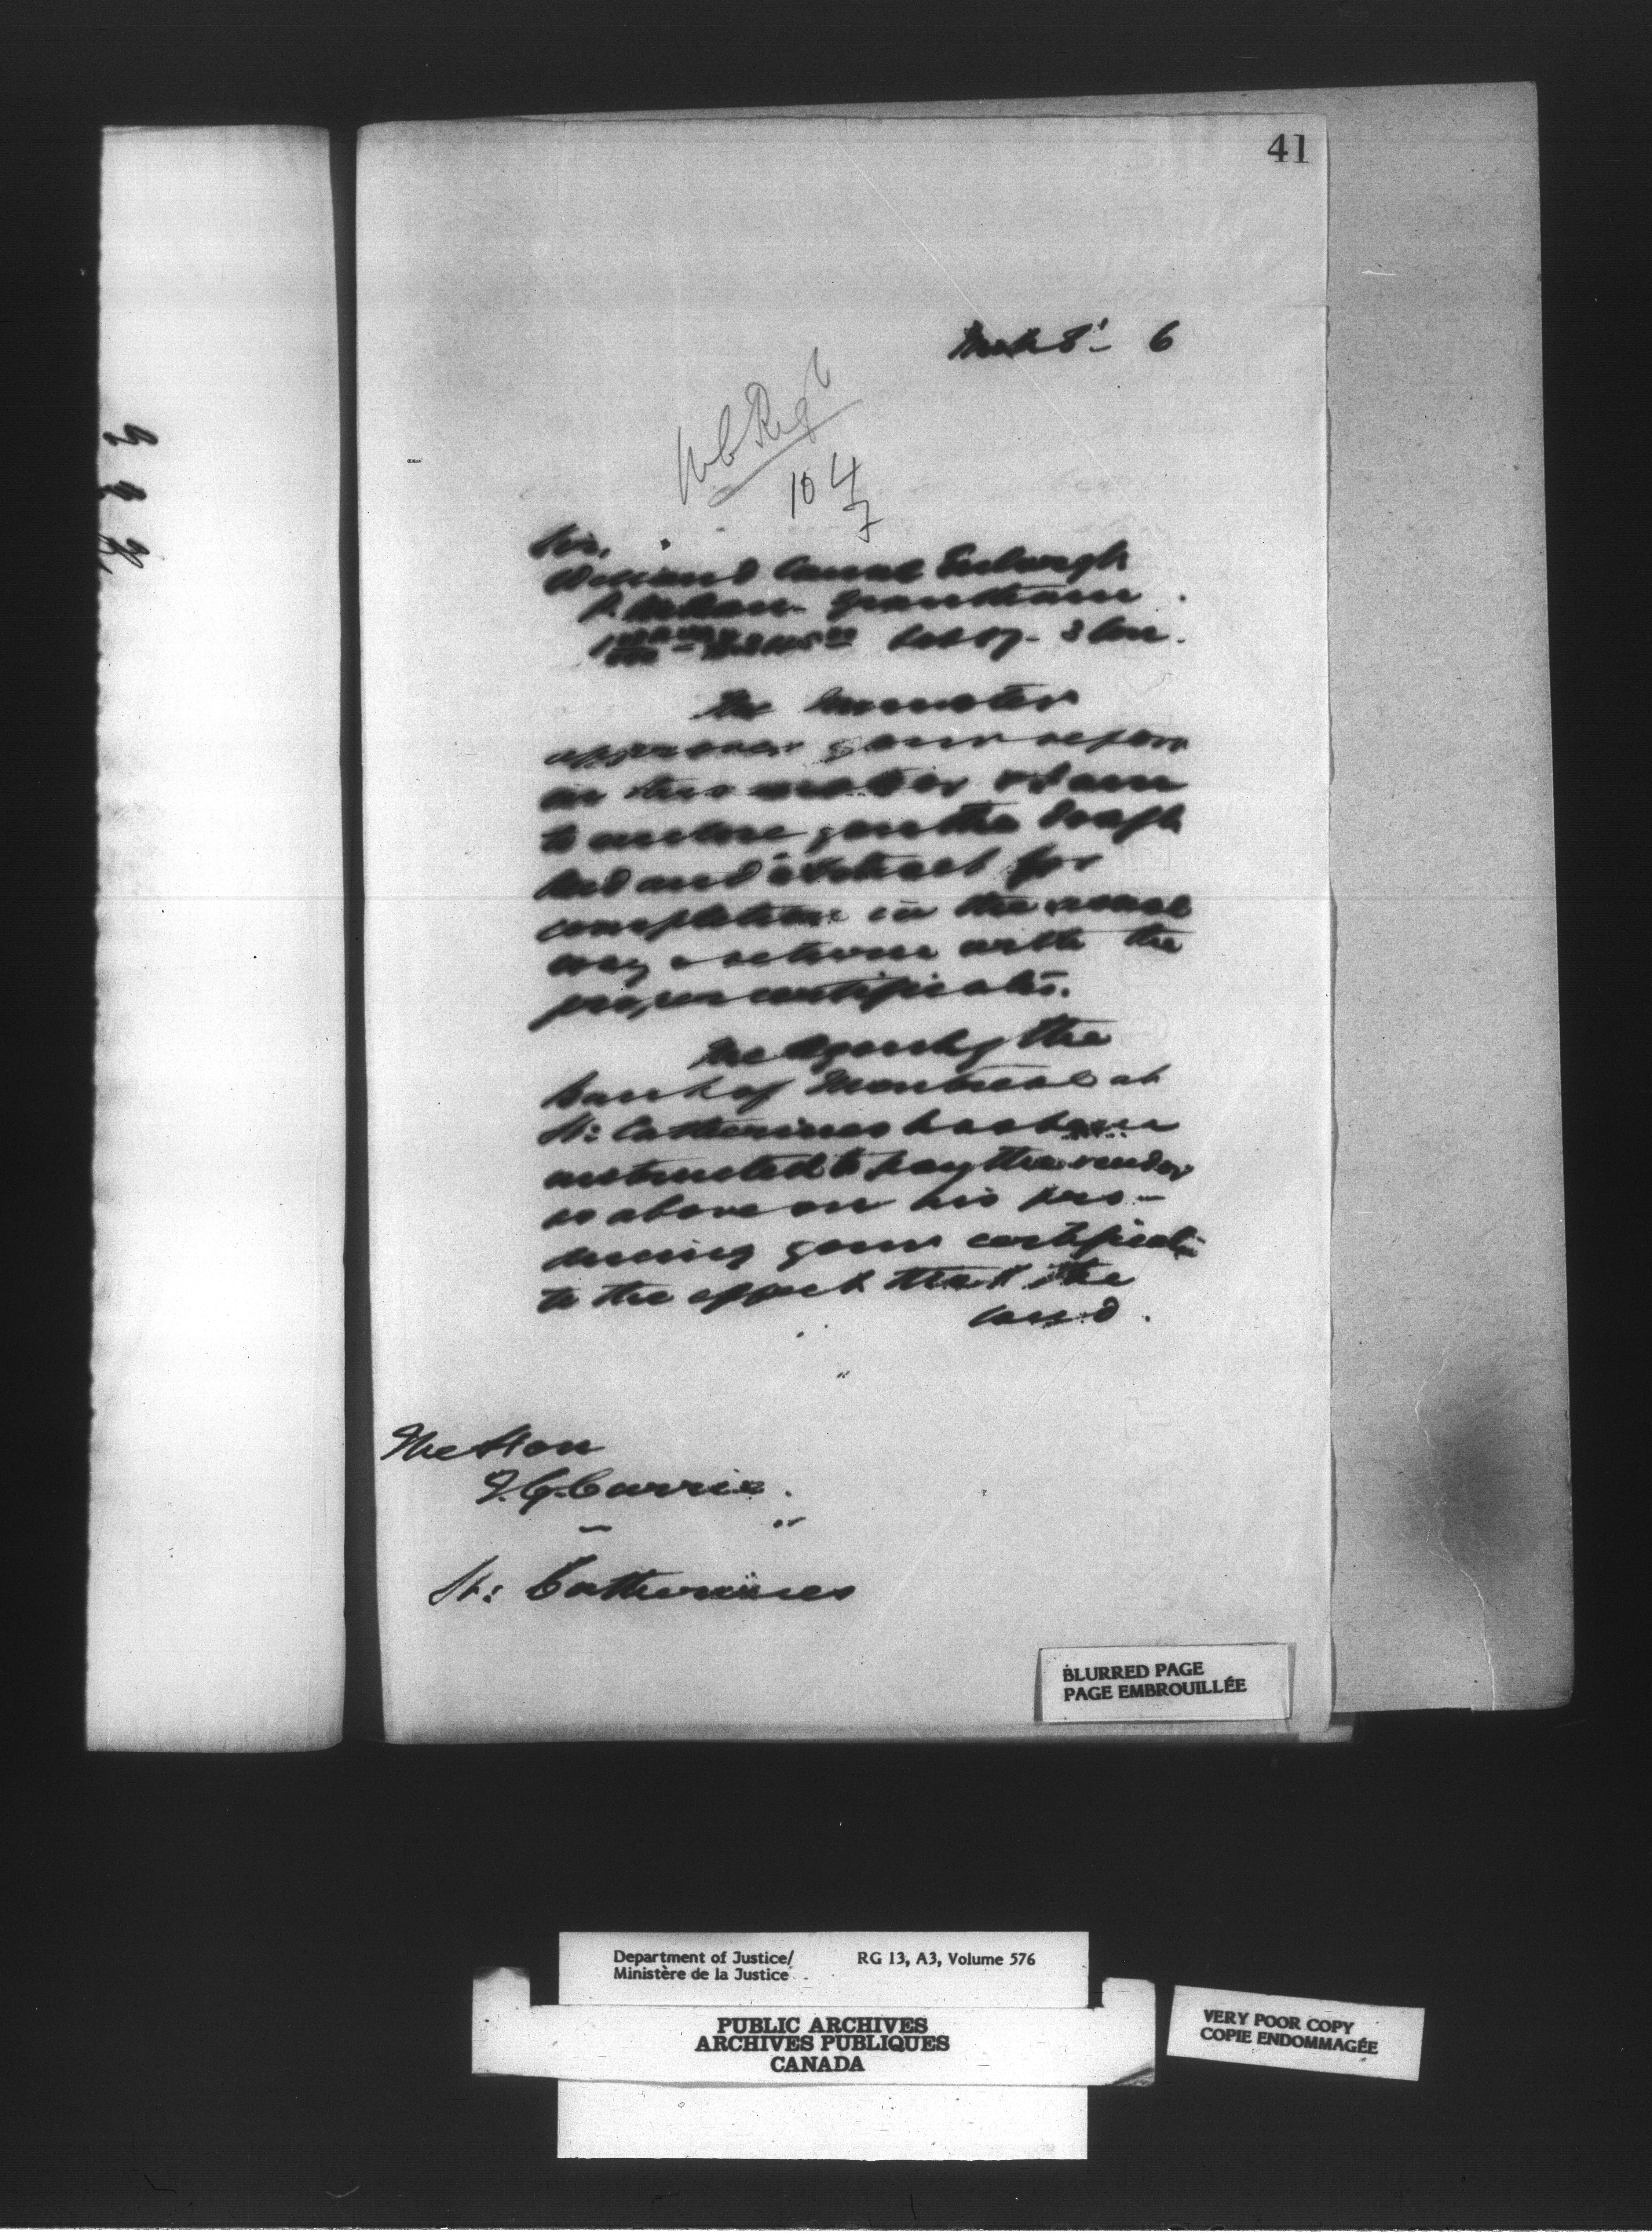 41
March 8' - 6
104
7
Sir,
Welland Canal Enlargt
Grantham
Lot 17 - 3 Con.
The Minister
approves your report
in this matter & I am
to enclose you the draft
deed and abstract for
completion in the usual
way & return with the
proper certificates.
The Agent of the
Bank of Montreal at
St: Catherines has been
instructed to pay the vendor
as above on his pro-
ducing your certificate
to the effect that the
land.
The Hon
J. G. Currie.
St: Catherines
BLURRED PAGE
PAGE EMBROUILLÉE
Department of Justice/ RG 13, A3, Volume 576
Ministère de la Justice
PUBLIC ARCHIVES
ARCHIVES PUBLIQUES
CANADA
VERY POOR COPY
COPIE ENDOMMAGÉE